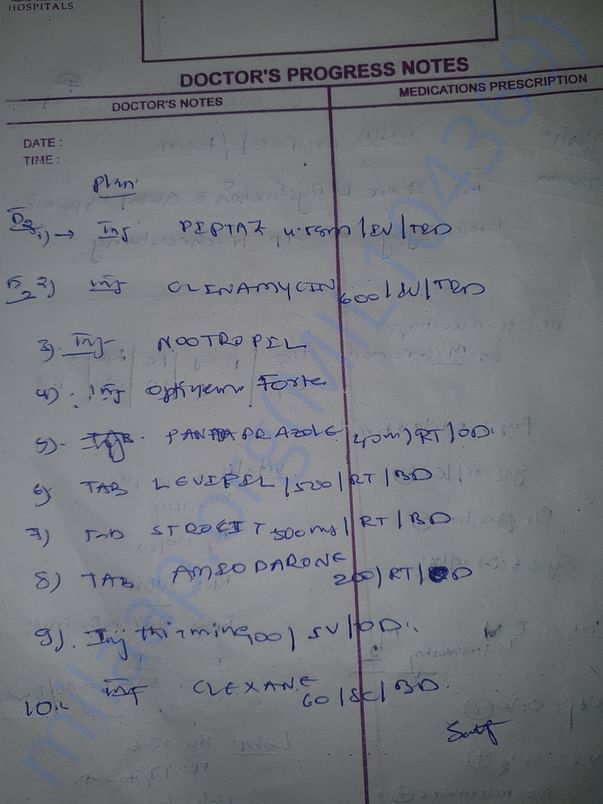 HOSPITALS
DOCTOR'S PROGRESS NOTES
DOCTOR'S NOTES
MEDICATIONS PRESCRIPTION
DATE :
TIME :
Plan
D3 1) → Inj PIPTAZ 4.5gm / IV / TRD
D2 2) Inj CLINAMYCIN 600 / IV / TRD
3) Inj NOOTROPIL
4) Inj Optineuron Forte
5) TAB PANTAPRAZOLE 40mg / RT / OD
6) TAB LEVIPIL / 500 / RT / BD
7) TAB STROCIT 500mg / RT / BD
8) TAB AMIODARONE 200 / RT / OD
9) Inj thiamine 100 / IV / OD
10. Inj CLEXANE 60 / SC / BD
milaap.org(MIL104369)